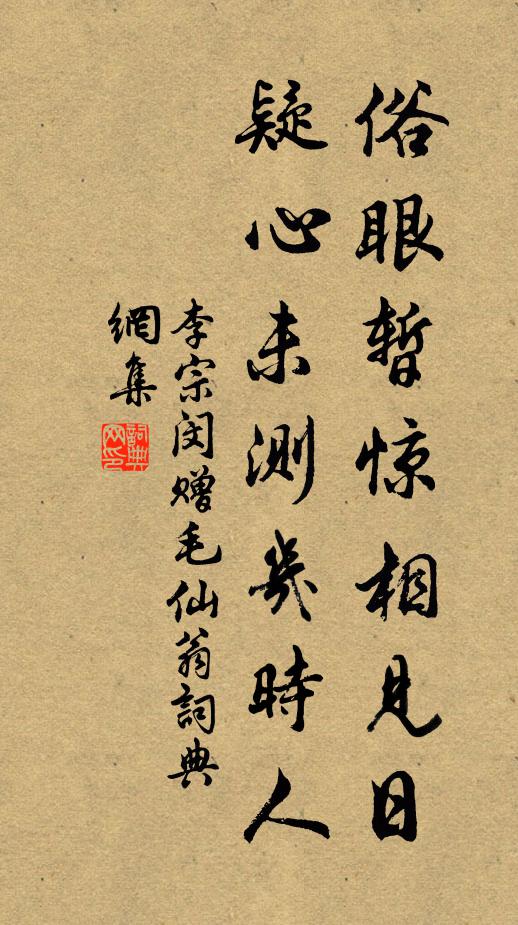 俗眼暂惊相见日
疑心未测幾時人
李宗闵赠毛仙翁詞典
網集
詞典
网印